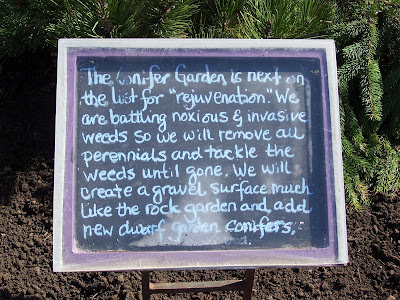 The Conifer Garden is next on
the list for "rejuvenation." We
are battling noxious & invasive
weeds so we will remove all
perennials and tackle the
weeds until gone. We will
create a gravel surface much
like the rock garden and add
new dwarf garden conifers.